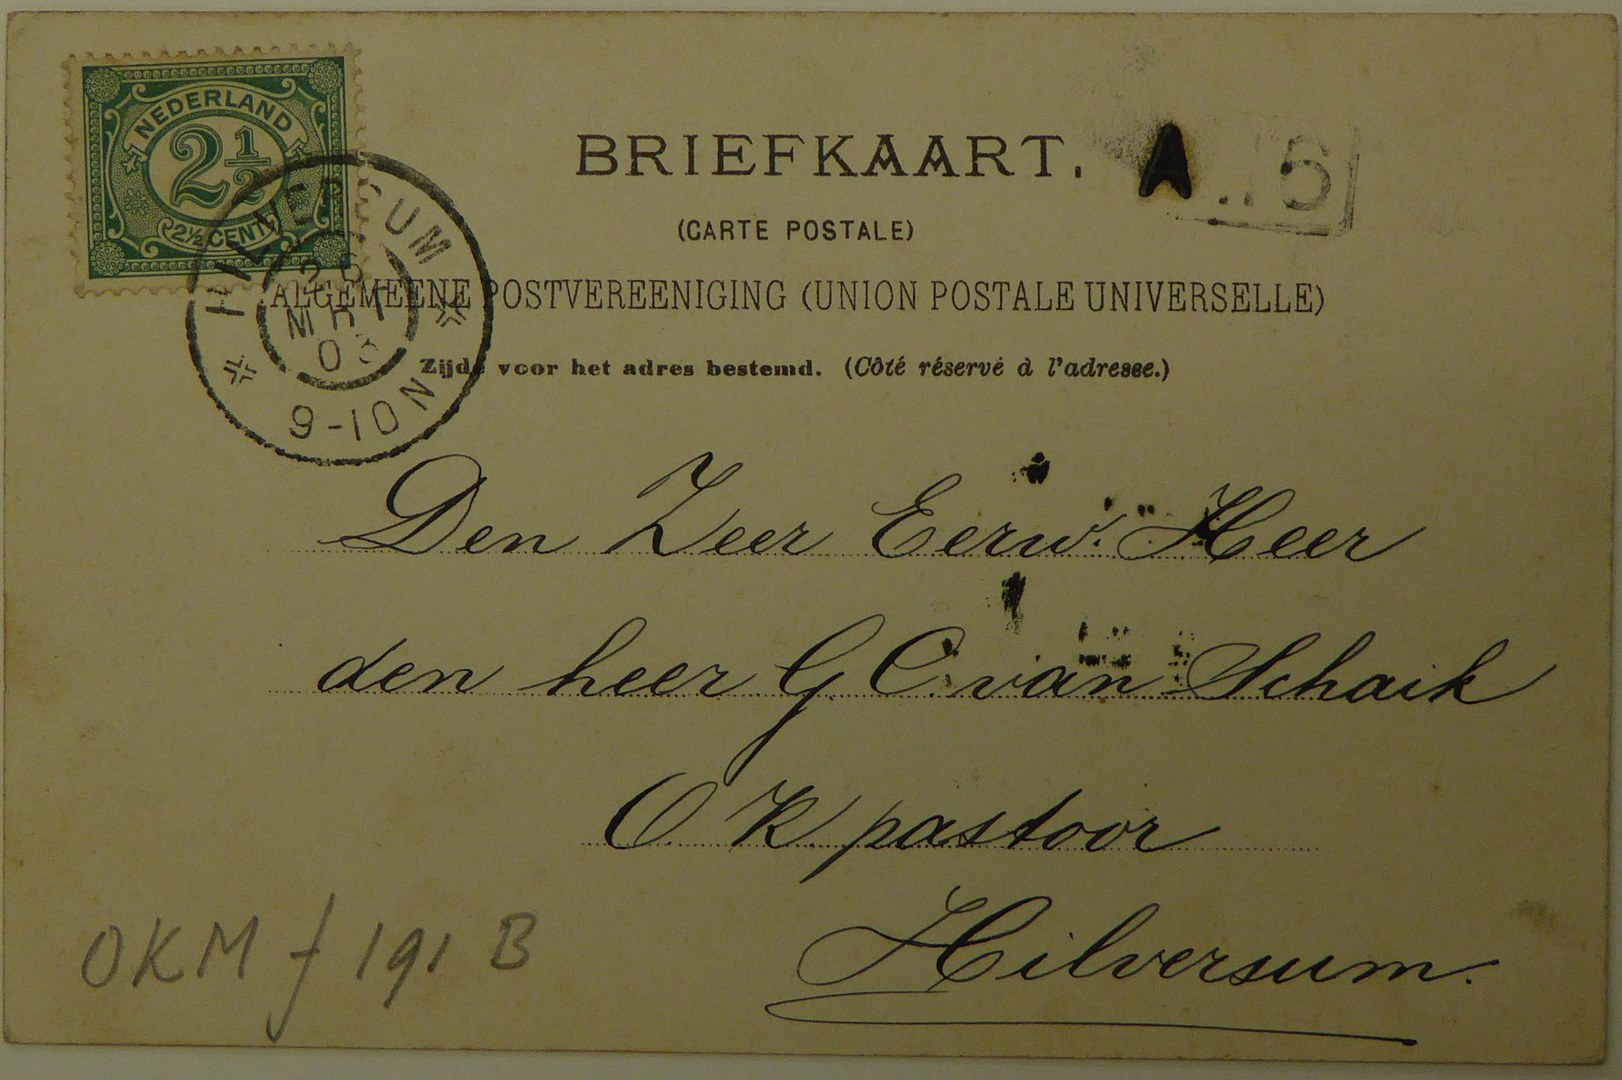 NEDERLAND
2½
2½ CENT
HILVERSUM
MRT
03
9-10N
BRIEFKAART.
A
5
(CARTE POSTALE)
ALGEMEENE POSTVEREENIGING (UNION POSTALE UNIVERSELLE)
Zijde voor het adres bestemd. (Côté réservé à l'adresse.)
Den Zeer Eerw. Heer
den heer G. C. van Schaik
O. K. pastoor
Hilversum.
OKM f 191 B